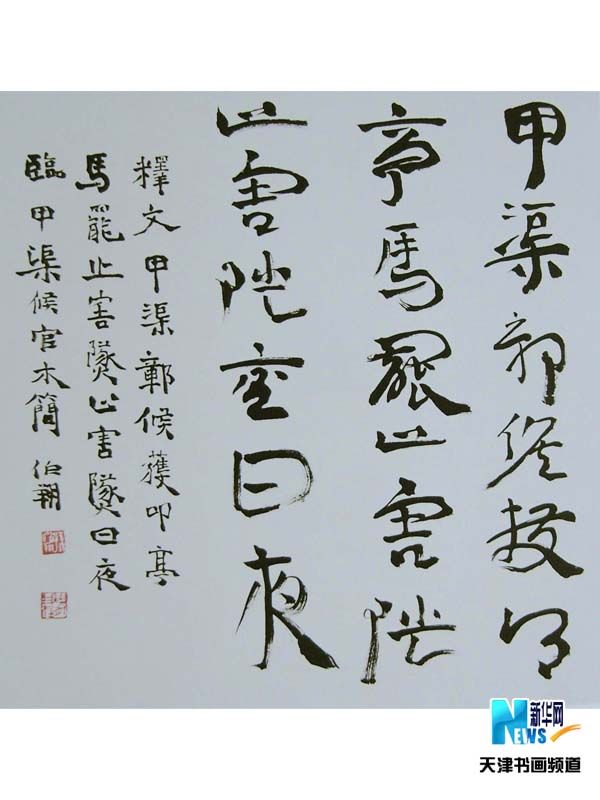 甲渠鄣候獲叩
亭馬罷止害隧
止害隧曰夜
釋文甲渠鄣候獲叩亭
馬罷止害隧止害隧曰夜
臨甲渠候官木簡 伯翔
新华网
NEWS
天津书画频道